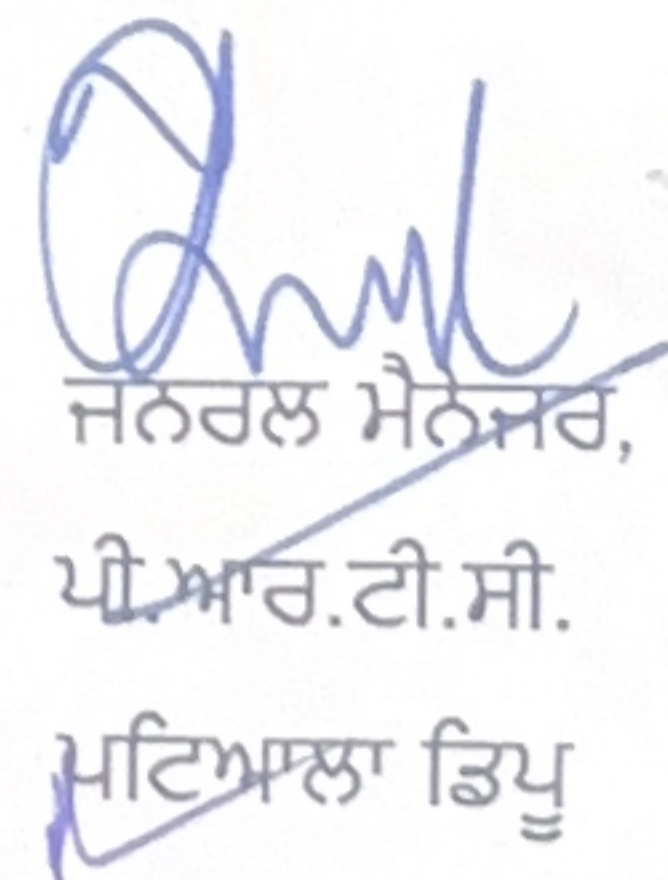 ਜਨਰਲ ਮੈਨੇਜਰ,
ਪੀ.ਆਰ.ਟੀ.ਸੀ.
ਪਟਿਆਲਾ ਡਿਪੂ